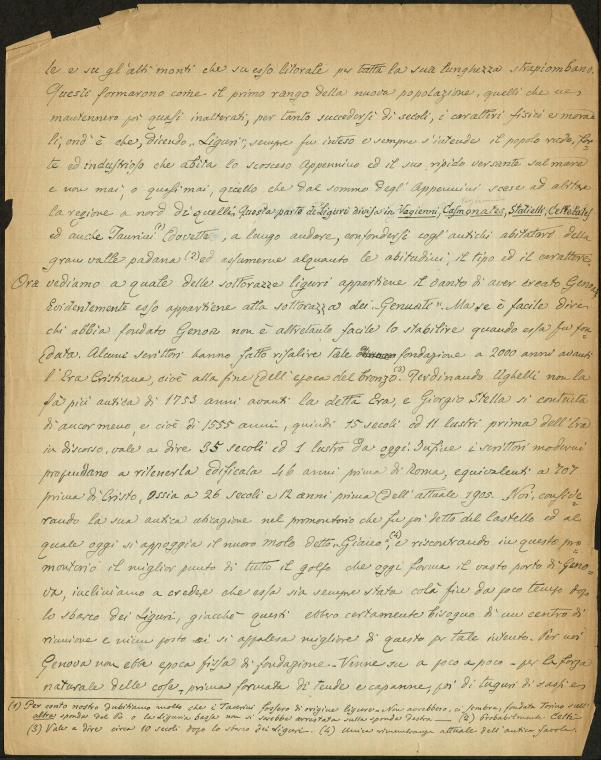 le e su gl'alti monti che su esso litorale per tutta la sua lunghezza strapiombano.
Questi formarono come il primo rango della nuova popolazione, quelli che ne
mantennero poi quasi inalterati, per tanto succedersi di secoli, i caratteri fisici e mora
li; ond'è che, dicendo „Liguri", sempre fu inteso e sempre s'intende il popolo rude, for
te ed industrioso che abita lo scosceso Appennino ed il suo ripido versante sul mare
e non mai, o quasi mai, quello che dal sommo degl'Appennini scese ad abitare
la regione a nord di quelli. Questa parte di Liguri divisa in Vagienni, Casmonates, Statielli, Celelates
ed anche Taurini (1) , a lungo andare, confondersi cogl'antichi abitatori della
gran valle padana (2) ed assumerne alquanto le abitudini, il tipo ed il carattere.
Ora vediamo a quale delle sottorazze liguri appartiene il vanto di aver creato Genova.
Evidentemente esso appartiene alla sottorazza dei „Genuati". Ma se è facile dire
chi abbia fondato Genova non è altrettanto facile lo stabilire quando essa fu fon
data. Alcuni scrittori hanno fatto risalire tale fondazione a 2000 anni avanti
l'Era Cristiana, cioè alla fine dell'epoca del bronzo (3). Ferdinando Ughelli non la
fa più antica di 1753 anni avanti la detta Era, e Giorgio Stella si contenta
di ancor meno, e cioè di 1555 anni, quindi 15 secoli ed 11 lustri prima dell'Era
in discorso, vale a dire 35 secoli ed 1 lustro da oggi. Infine i scrittori moderni
propendano a ritenerla edificata 46 anni prima di Roma, equivalenti a 707
prima di Cristo, ossia a 26 secoli e 12 anni prima dell'attuale 1905. Noi, conside
rando la sua antica ubicazione nel promontorio che fu poi detto del Castello ed al
quale oggi si appoggia il nuovo molo detto „Giano" (4), e riscontrando in questo pro
montorio il miglior punto di tutto il golfo che oggi forma il vasto porto di Geno
va, incliniamo a credere che essa sia sempre stata colà fin da poco tempo dopo
lo sbarco dei Liguri, giacchè questi ebber certamente bisogno di un centro di
riunione e niun posto si appalesa migliore di questo per tale intento. Per noi
Genova non ebbe epoca fissa di fondazione. - Venne su a poco a poco - per la forza
naturale delle cose, prima formata di tende e capanne, poi di tuguri di sassi e
(1) Per conto nostro dubitiamo molto che i Taurini fossero di origine ligure. Non avrebbero, ci sembra, fondata Torino sull'
altra sponda del Po e la Liguria bassa non si sarebbe arrestata sulla sponda destra — (2) Probabilmente Celti.
(3) Vale a dire circa 10 secoli dopo lo sbarco dei Liguri. (4) Unica rimembranza attuale dell'antica favola.